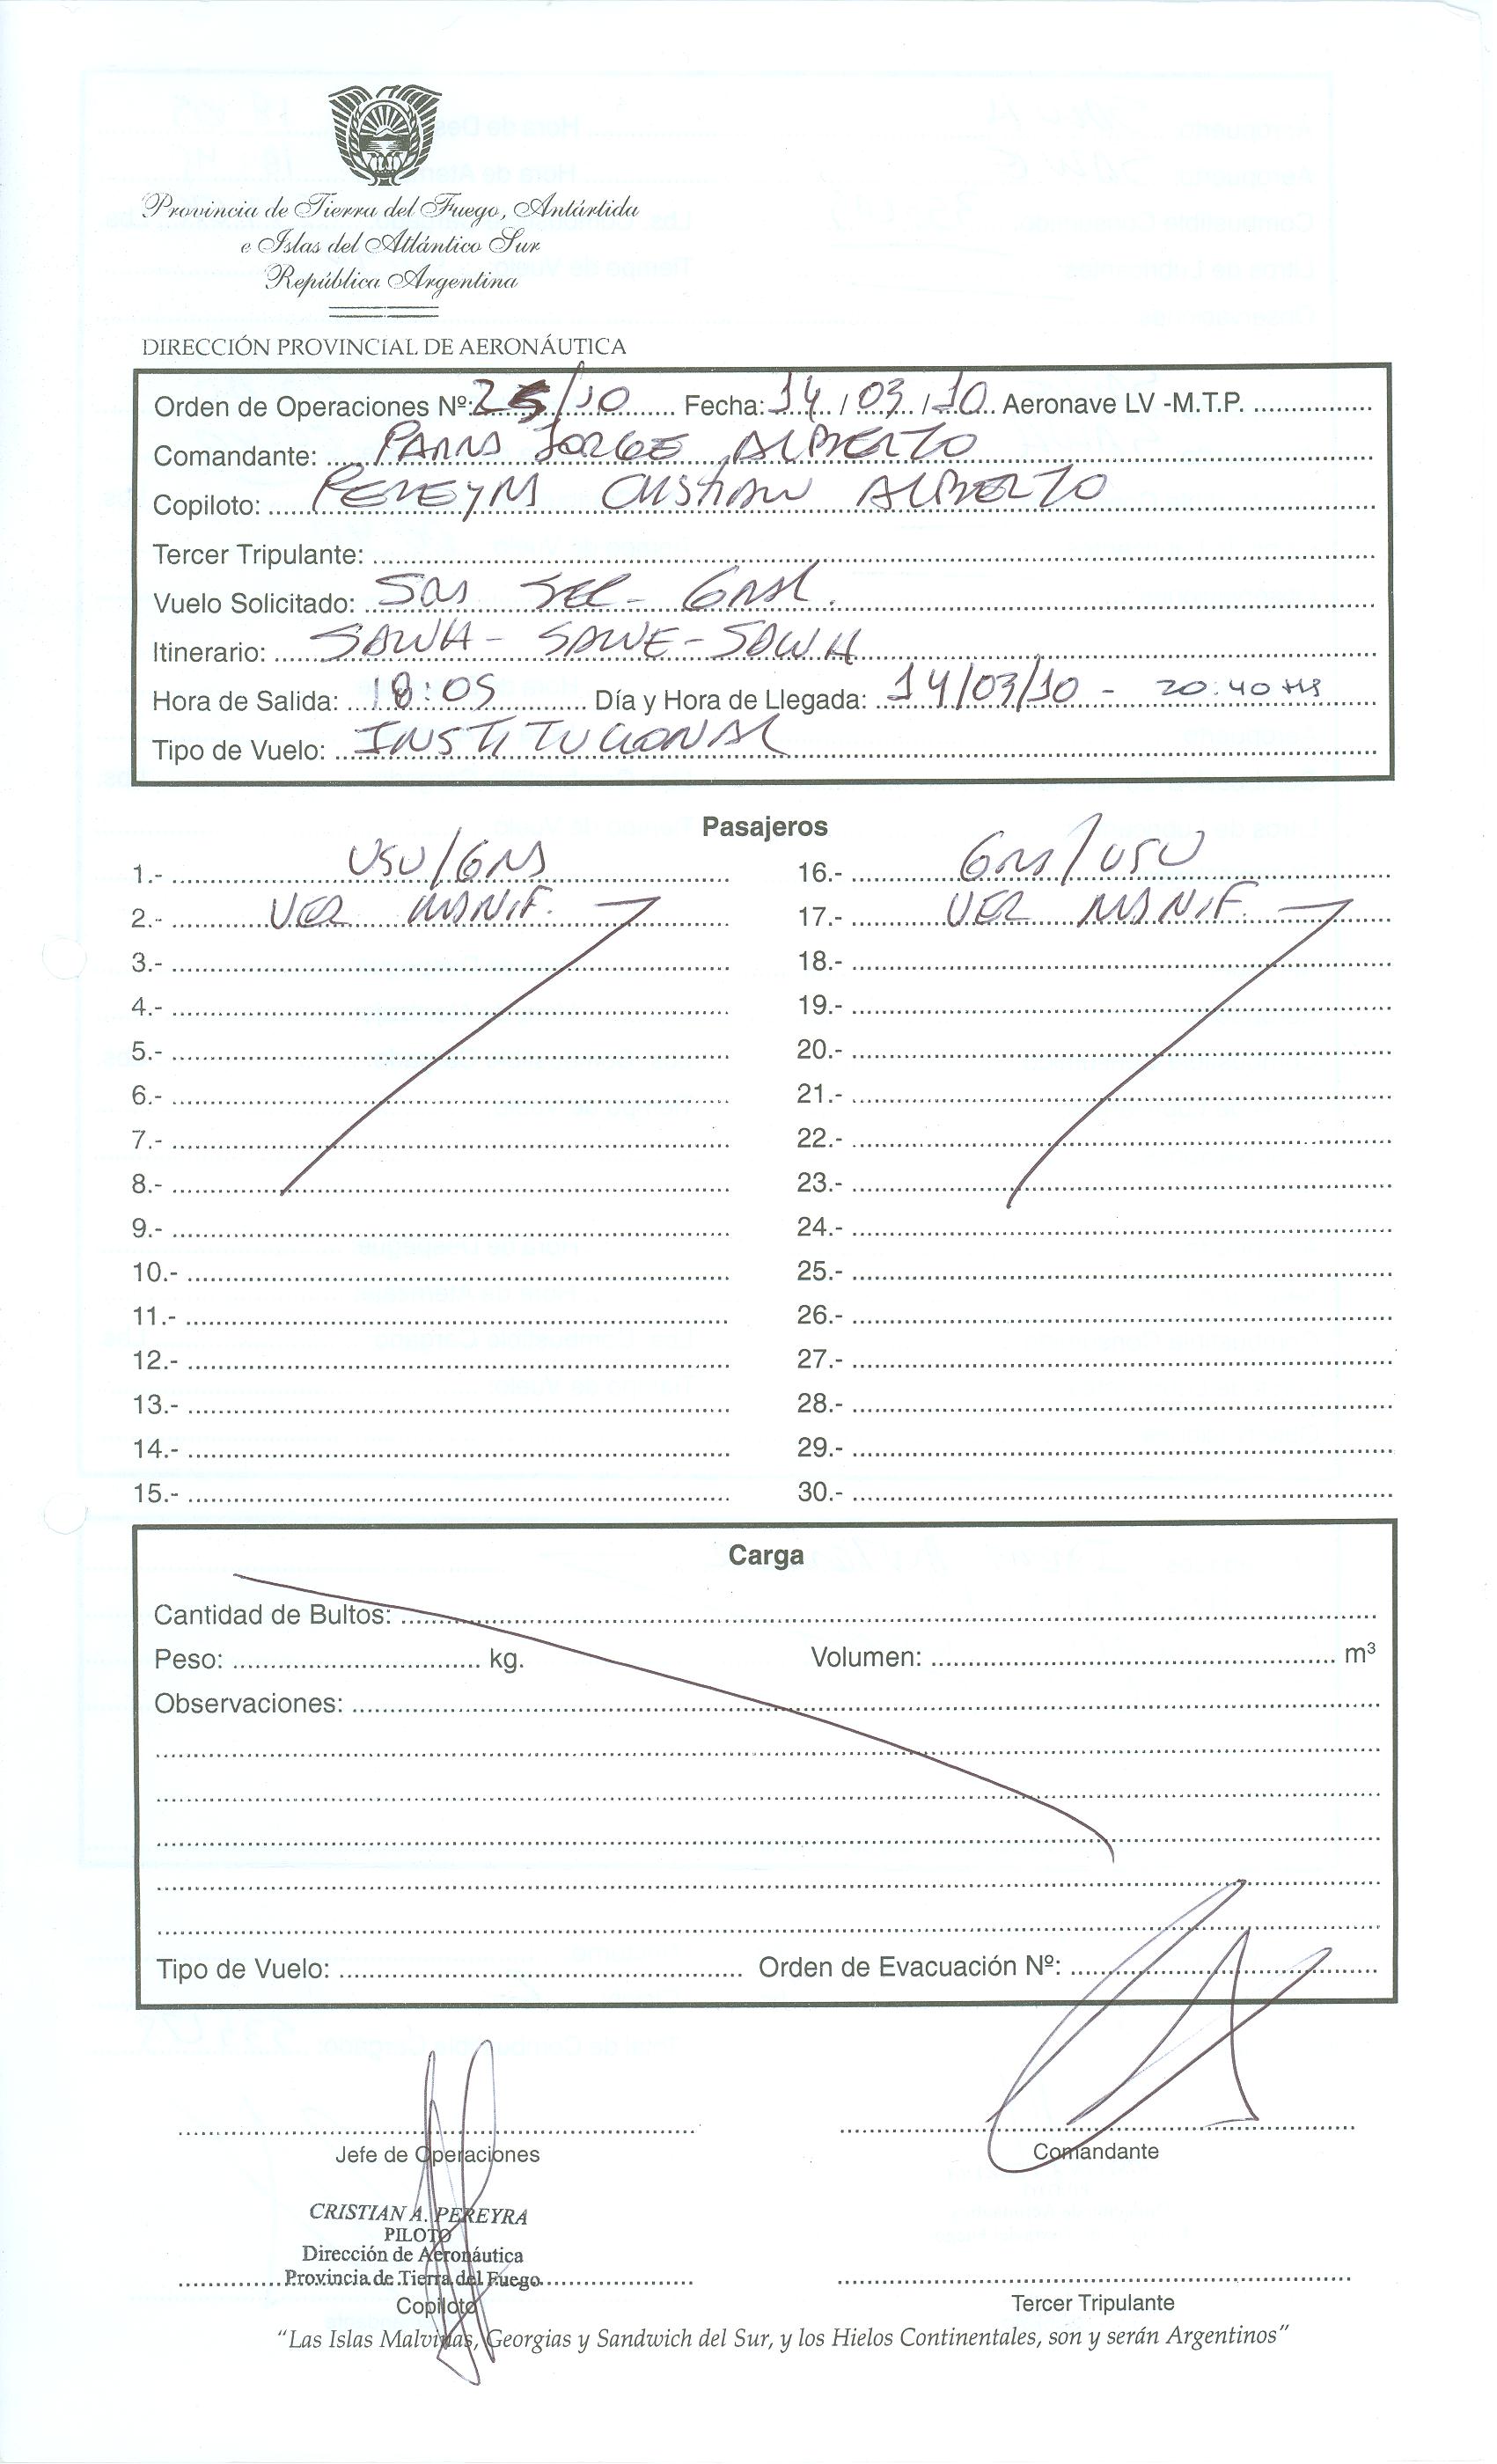 Provincia de Tierra del Fuego, Antártida
e Islas del Atlántico Sur
República Argentina
DIRECCIÓN PROVINCIAL DE AERONÁUTICA
Orden de Operaciones Nº: 25/10 Fecha: 14/03/10 Aeronave LV -M.T.P.
Comandante: JORGE ALBERTO
Copiloto: PEREYRA CRISTIAN ALBERTO
Tercer Tripulante:
Vuelo Solicitado: SEC - GRAL.
Itinerario: SAWH - SAWE - SAWH
Hora de Salida: 18:05 Día y Hora de Llegada: 14/03/10 - 20:40 HS
Tipo de Vuelo: INSTITUCIONAL
Pasajeros
1.- USU/GRA
2.- VER MANIF.
3.-
4.-
5.-
6.-
7.-
8.-
9.-
10.-
11.-
12.-
13.-
14.-
15.-
16.- GRA/USU
17.- VER MANIF.
18.-
19.-
20.-
21.-
22.-
23.-
24.-
25.-
26.-
27.-
28.-
29.-
30.-
Carga
Cantidad de Bultos:
Peso: kg. Volumen: m³
Observaciones:
Tipo de Vuelo: Orden de Evacuación Nº:
Jefe de Operaciones
Comandante
CRISTIAN A. PEREYRA
PILOTO
Dirección de Aeronáutica
Provincia de Tierra del Fuego
Copiloto
Tercer Tripulante
"Las Islas Malvinas, Georgias y Sandwich del Sur, y los Hielos Continentales, son y serán Argentinos"